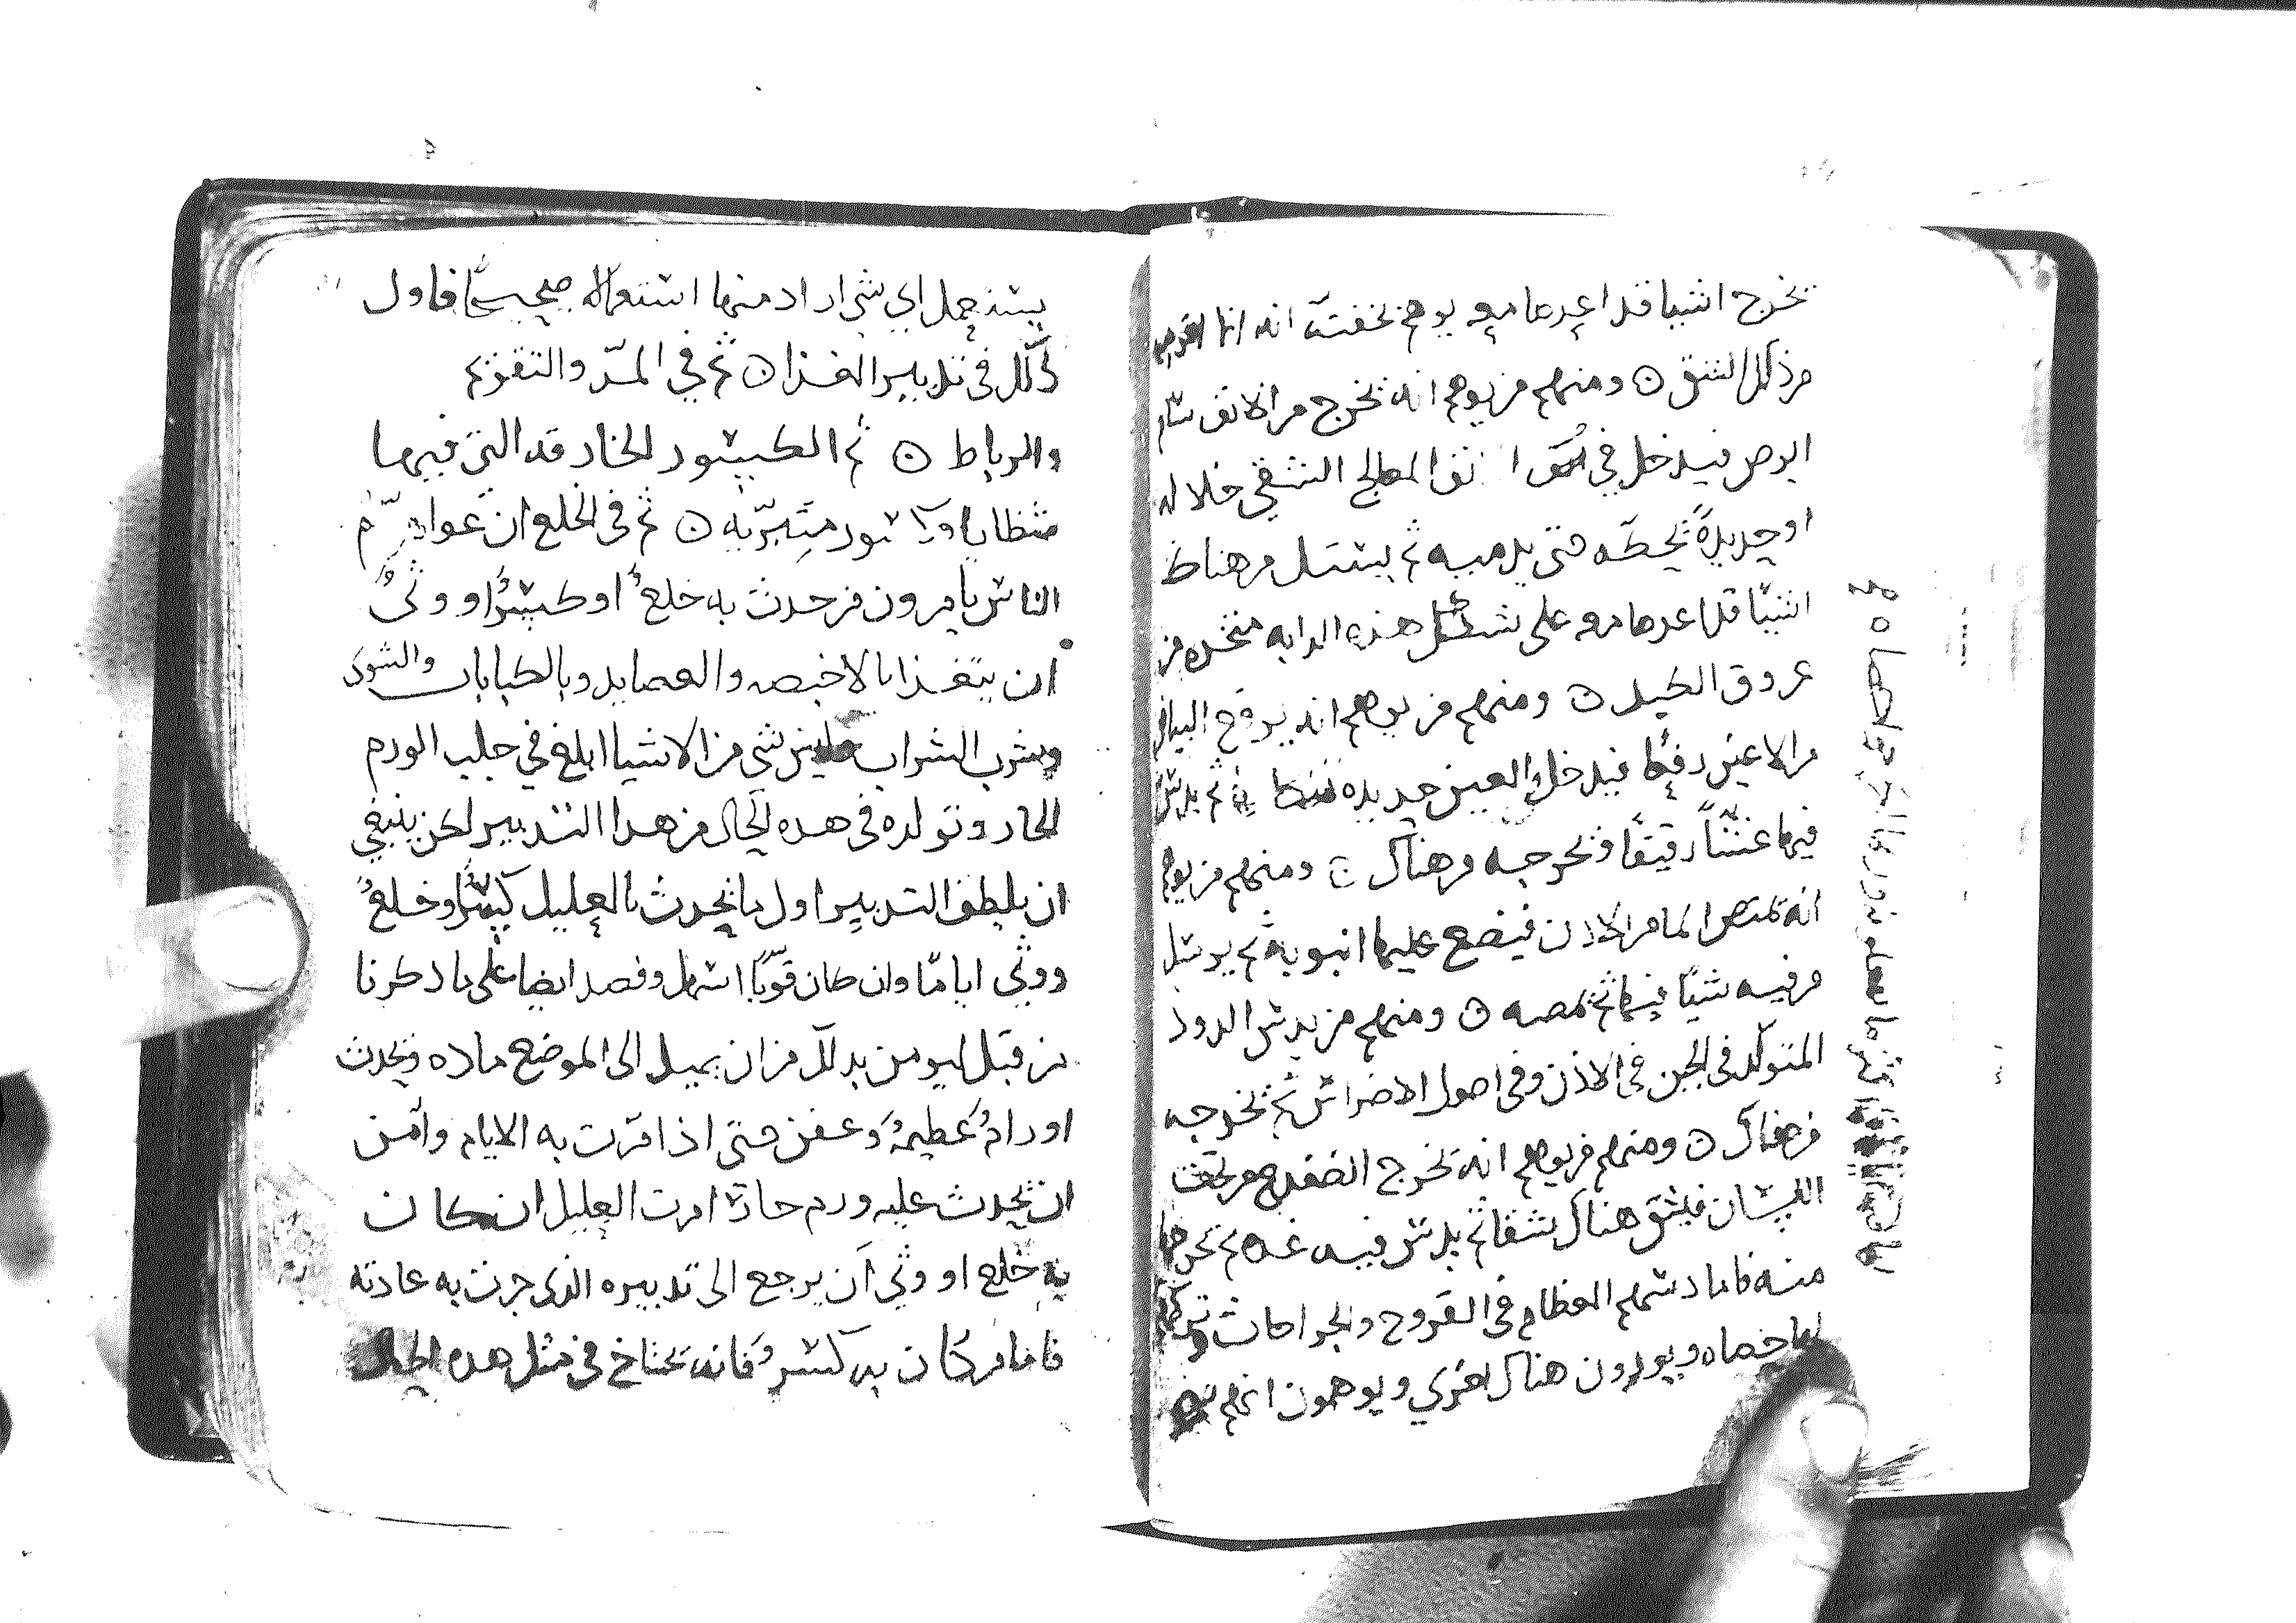 يخرج اشيا قد اعدها معه يوهم بخفته انه انما اخرجه
من ذلك الشق ه ومنهم من يوهم انه يخرج من الانف سام
ابرص فيدخل في انف المعالج الشقي خلاله
او حديدة يحكه حتى يدميه ثم يستل من هناك
اشيا قد اعدها معه على شكل هذه الدابه متخذه من
عروق الكبد ه ومنهم من يوهم انه يرفع البياض
من الاعين دفعة فيدخل في العين حديده ثم يدس
فيها غشا رقيقا ويخرجه من هناك ه ومنهم من يوهم
انه يمتص الما من الاذن فيضع عليها انبوبة ثم يرسل
من فيه شيا فيها ثم يمصه ه ومنهم من يدس الدود
المتولد في الجبن في الاذن وفي اصول الاضراس ثم يخرجه
من هناك ه ومنهم من يوهم انه يخرج الضفدع من تحت
اللسان فيشق هناك شقا ثم يدس فيه غده ثم يخرجها
منه فاما دسهم العظام في القروح والجراحات وتركها
اياما هناك ويوهمون انهم
يستعمل اي شي اراد منها استعماله صحيحا فاول
ذلك في تدبير الغذا ه ثم في المد والتقويم
والرباط ه ثم الكسور الحادقه التي فيها
شظايا وكسور متبرية ه ثم في الخلع ان عوام
الناس يامرون من حدث به خلع او كسر او وثي
ان يتغذا بالاخبصه والعصايد وبالكبابات والشوي
وبشرب الشراب وليس شي من الاشيا ابلغ في جلب الورم
الحار وتولده في هذه الحال من هذا التدبير لكن ينبغي
ان يلطف التدبير اول ما يحدث بالعليل كسر او خلع
ووثي اياما وان كان قويا اسهل وفصد ايضا على ما ذكرنا
من قبل ليومن بذلك من ان يميل الى الموضع ماده ويحدث
اورام عظيمة وعفن حتى اذا مرت به الايام وامن
ان يحدث عليه ورم حاد امرت العليل ان كان
به خلع او وثي ان يرجع الى تدبيره الذي جرت به عادته
فاما من كان به كسر فانه يحتاج في مثل هذه الحال